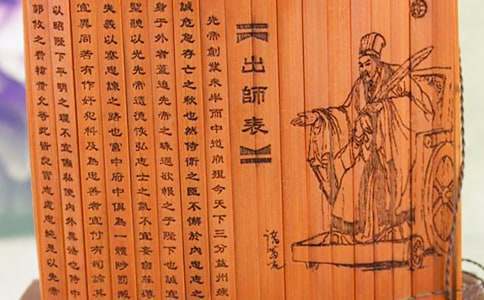 諸葛亮
出師表
先帝創業未半而中道崩殂今天下三分益州疲
誠危急存亡之秋也然侍衛之臣不懈於內忠志之
身于外者蓋追先帝之殊遇欲報之于陛下也誠宜
聖聽以光先帝遺德恢弘志士之氣不宜妄自菲薄
失義以塞忠諫之路也宮中府中俱為一體陟罰
宜異同若有作奸犯科及為忠善者宜付有司論其
以昭陛下平明之理不宜偏私使內外異法也侍中
郭攸之費禕董允等此皆良實志慮忠純是以先帝